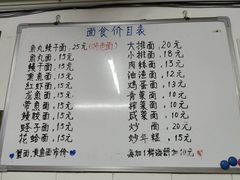 面食价目表
鱼丸鳗子面,25元(特色面)
鱼丸面,15元
鳗干面,15元
熏鱼面,15元
红虾面,15元
花鱼面,15元
带鱼面,15元
鳗胶面,15元
蛏子面,15元
花蛤面,15元
蟹面,黄鱼面市价
大排面,20元
小排面,18元
肉丝面,15元
油渣面,12元
鸡蛋面,13元
青菜面,10元
榨菜面,10元
咸菜面,10元
炒面,20元
炒年糕,15元
每加1样海鲜加10元